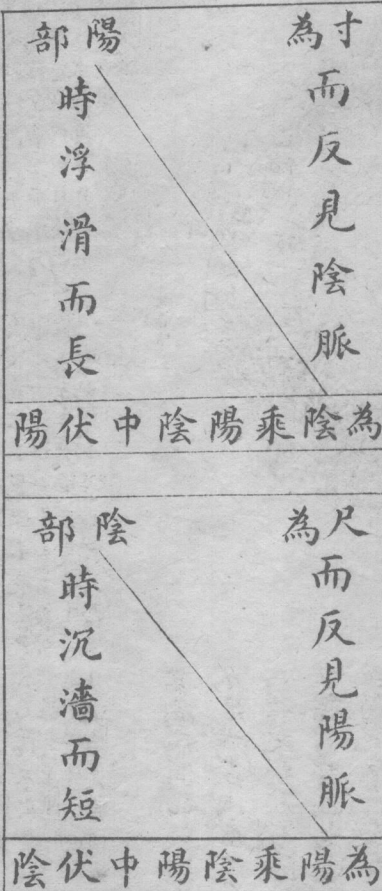 寸為
陽部
而反見陰脈
時浮滑而長
為陰乘陽陰中伏陽
尺為
陰部
而反見陽脈
時沉濇而短
為陽乘陰陽中伏陰